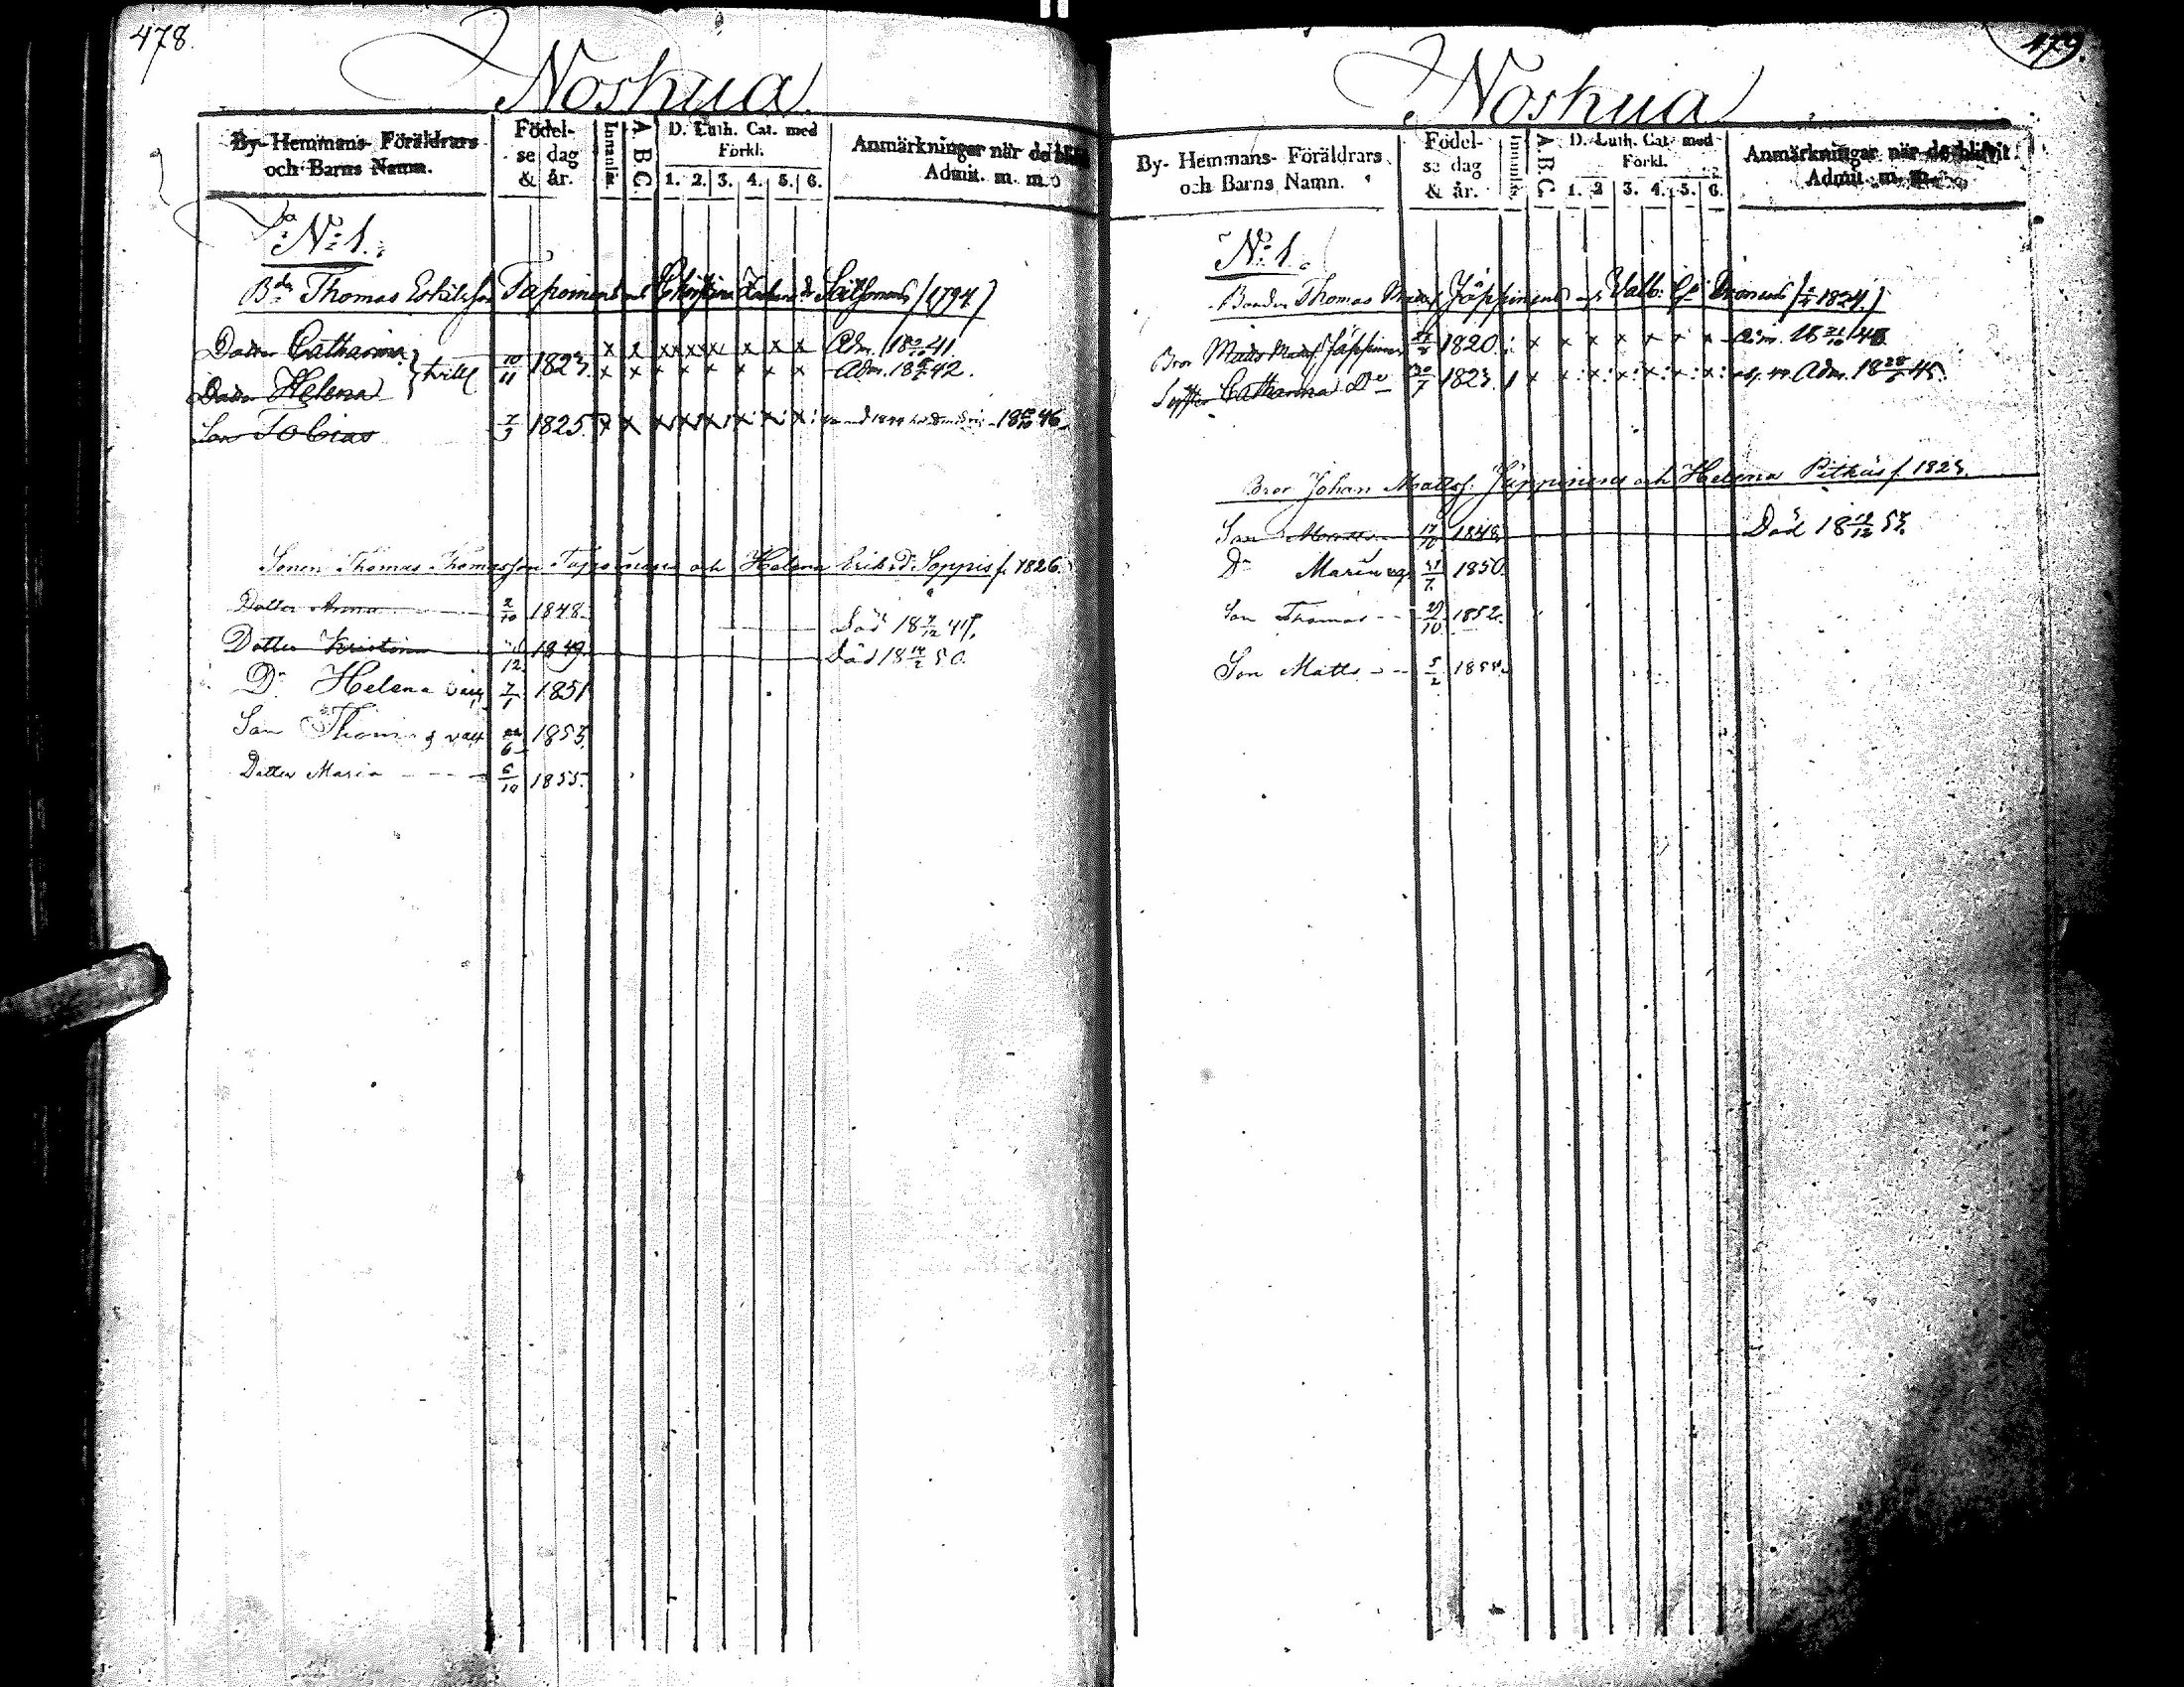 478.
Noskua
By- Hemmans- Föräldrars och Barns Namn.
Födel- se dag & år.
Innanläs.
A. B. C.
D. Luth. Cat. med Förkl.
1. 2. 3. 4. 5. 6.
Anmärkningar när de blifvit Admit. m. m.
No 1.
Bdn Thomas Eskilsson Taponens Christina (1794)
Dotter Catharina tvill 10/11 1823. x x x x x x x x Adm. 18 41.
Dotter Helena x x x x x x x x Adm. 18 42.
Son Tobias 1825. x x x x x x x x 1844 18 46
Sonen Thomas Thomasson Taponens och Helena Eriksd. Soppis f. 1826.
Dotter Anna 2/10 1848. Död 18 7/12 49.
Dotter Kristina 12 1849. Död 18 14/2 50.
Dr Helena vacc 7/1 1851
Son Thomas vacc 22/6 1853.
Dotter Maria 6/10 1855.
479.
Noskua
By- Hemmans- Föräldrars och Barns Namn.
Födel- se dag & år.
Innanläs.
A B C
D. Luth. Cat. med Förkl.
1. 2 3. 4. 5. 6.
Anmärkningar när de blifvit Admit. m. m.
No 1.
Bonden Thomas Mattss. Jäppinens Valb. (1824.)
Bror Mats Matss. Jäppinen 1820. x x x x x x x Adm. 18
Syster Catharina Do 30/7 1823. x x x x x x x Adm. 18 45.
Bror Johan Mattss. Jäppinens och Helena Pitkäs f. 1823.
Son 17/10 1848 Död 18 12 53.
Dr Maria vac 31/7. 1850.
Son Thomas 29/10. 1852.
Son Matts 5/2 1854.